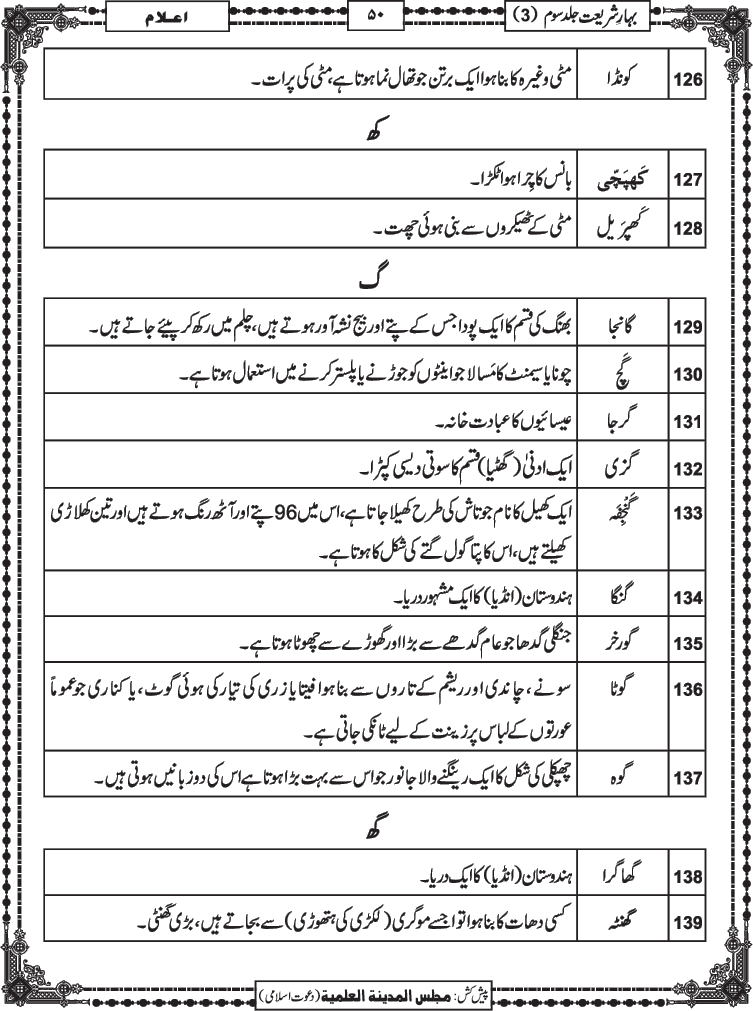 بہارِشریعت جلد سوم (3)
۵۰
اعلام
126 کونڈا مٹی وغیرہ کا بنا ہوا ایک برتن جو تھال نما ہوتا ہے، مٹی کی پرات۔
کھ
127 کَھپَچّی بانس کا چِرا ہوا ٹکڑا۔
128 کَھپرَیل مٹی کے ٹھیکروں سے بنی ہوئی چھت۔
گ
129 گانجا بھنگ کی قسم کا ایک پودا جس کے پتے اور بیج نشہ آور ہوتے ہیں، چلم میں رکھ کر پیئے جاتے ہیں۔
130 گَچ چونا یا سیمنٹ کا مَسالا جو اینٹوں کو جوڑنے یا پلستر کرنے میں استعمال ہوتا ہے۔
131 گرجا عیسائیوں کا عبادت خانہ۔
132 گزی ایک ادنیٰ (گھٹیا) قسم کا سوتی دیسی کپڑا۔
133 گَنْجِفَہ ایک کھیل کا نام جو تاش کی طرح کھیلا جاتا ہے، اس میں 96 پتے اور آٹھ رنگ ہوتے ہیں اور تین کھلاڑی
کھیلتے ہیں، اس کا پتا گول گتے کی شکل کا ہوتا ہے۔
134 گنگا ہندوستان (انڈیا) کا ایک مشہور دریا۔
135 گورخر جنگلی گدھا جو عام گدھے سے بڑا اور گھوڑے سے چھوٹا ہوتا ہے۔
136 گوٹا سونے، چاندی اور ریشم کے تاروں سے بنا ہوا فیتا یا زری کی تیار کی ہوئی گوٹ، یا کناری جو عموماً
عورتوں کے لباس پر زینت کے لیے ٹانکی جاتی ہے۔
137 گوہ چھپکلی کی شکل کا ایک رینگنے والا جانور جو اس سے بہت بڑا ہوتا ہے اس کی دو زبانیں ہوتی ہیں۔
گھ
138 گھاگرا ہندوستان (انڈیا) کا ایک دریا۔
139 گھنٹہ کسی دھات کا بنا ہوا توا جسے موگری (لکڑی کی ہتھوڑی) سے بجاتے ہیں، بڑی گھنٹی۔
پیش کش: مجلس المدينة العلمية (دعوت اسلامی)